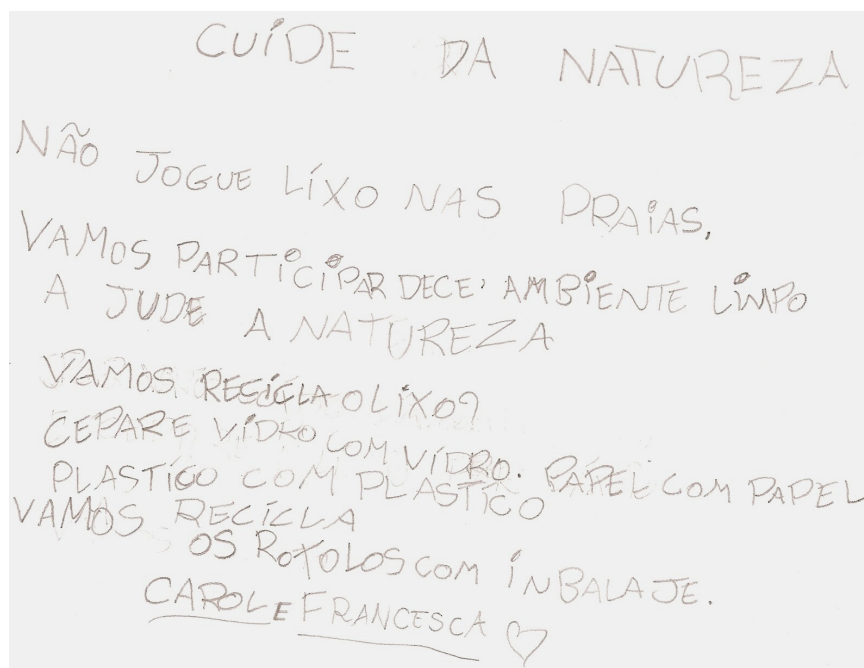 CUIDE DA NATUREZA
NÃO JOGUE LIXO NAS PRAIAS.
VAMOS PARTICIPAR DECE, AMBIENTE LIMPO
A JUDE A NATUREZA
VAMOS RECICLA O LIXO?
CEPARE VIDRO COM VIDRO. PAPEL COM PAPEL
PLASTICO COM PLASTICO
VAMOS RECICLA
OS ROTOLOS COM INBALAJE.
CAROL E FRANCESCA